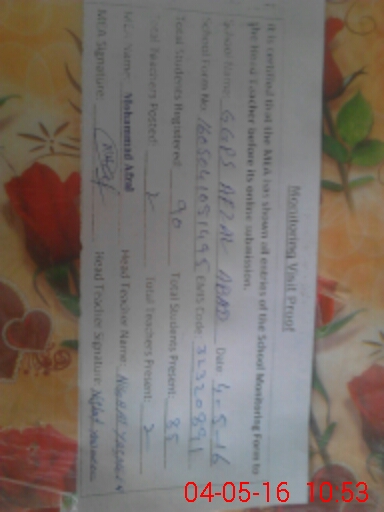 Monitoring Visit Proof
It is certified that the MEA has shown all entries of the School Monitoring Form to
the Head Teacher before its online submission.
School Name: GGPS AFZAL ABAD Date 4-5-16
School Form No. EMIS Code:
Total Students Registered: 90 Total Students Present: 85
Total Teachers Posted: 2 Total Teachers Present: 2
MEA Name: Mohammad Afzal Head Teacher Name:
MEA Signature: Head Teacher Signature:
04-05-16 10:53